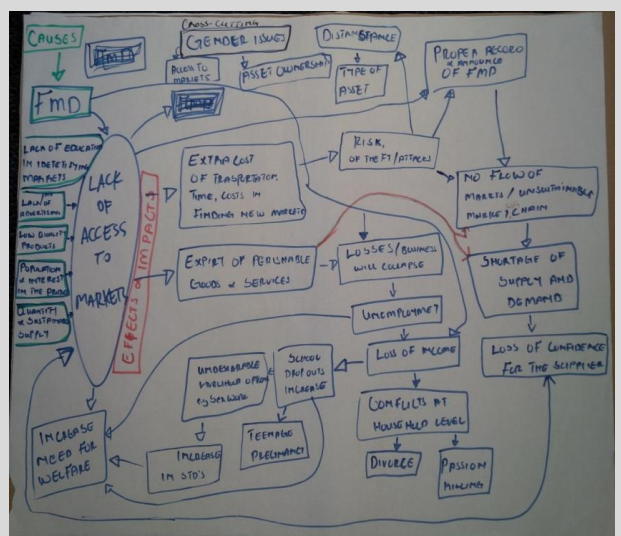 CAUSES
FMD
FMD
CROSS-CUTTING
GENDER ISSUES
ACCESS TO
MARKETS
FMD
ASSET OWNERSHIP
DISTANCE
TYPE OF
ASSET
PROPER RECORD
& ANNOUNCE
OF FMD
LACK OF EDUCATION
IN IDETETIFYING
MARKETS
LACK OF
ADVERTISING
LOW QUALITY
PRODUCTS
POPULATION
& INTEREST
IN THE
QUANTITY
&
SUPPLY
LACK
OF
ACCESS
TO
MARKETS
EFFECTS & IMPACTS
EXTRA COST
OF TRASPORTATION
TIME, COSTS IN
FINDING NEW MARKETS
RISK,
OF THEFT/ATTACKS
NO FLOW OF
MARKETS/UNSUSTAINABLE
MARKET CHAIN
EXPIRY OF PERISHABLE
GOODS & SERVICES
LOSSES/BUSINESS
WILL COLLAPSE
SHORTAGE OF
SUPPLY AND
DEMAND
UNEMPLOYMET
LOSS OF INCOME
LOSS OF CONFIDENCE
FOR THE SUPPLIER
SCHOOL
DROPOUTS
INCREASE
UNDESIRABLE
CONFLICTS AT
HOUSEHOLD LEVEL
TEENAGE
PREGNANCY
INCREASE
NEED FOR
WELFARE
INCREASE
IN STD'S
DIVORCE
PASSION
KILLING